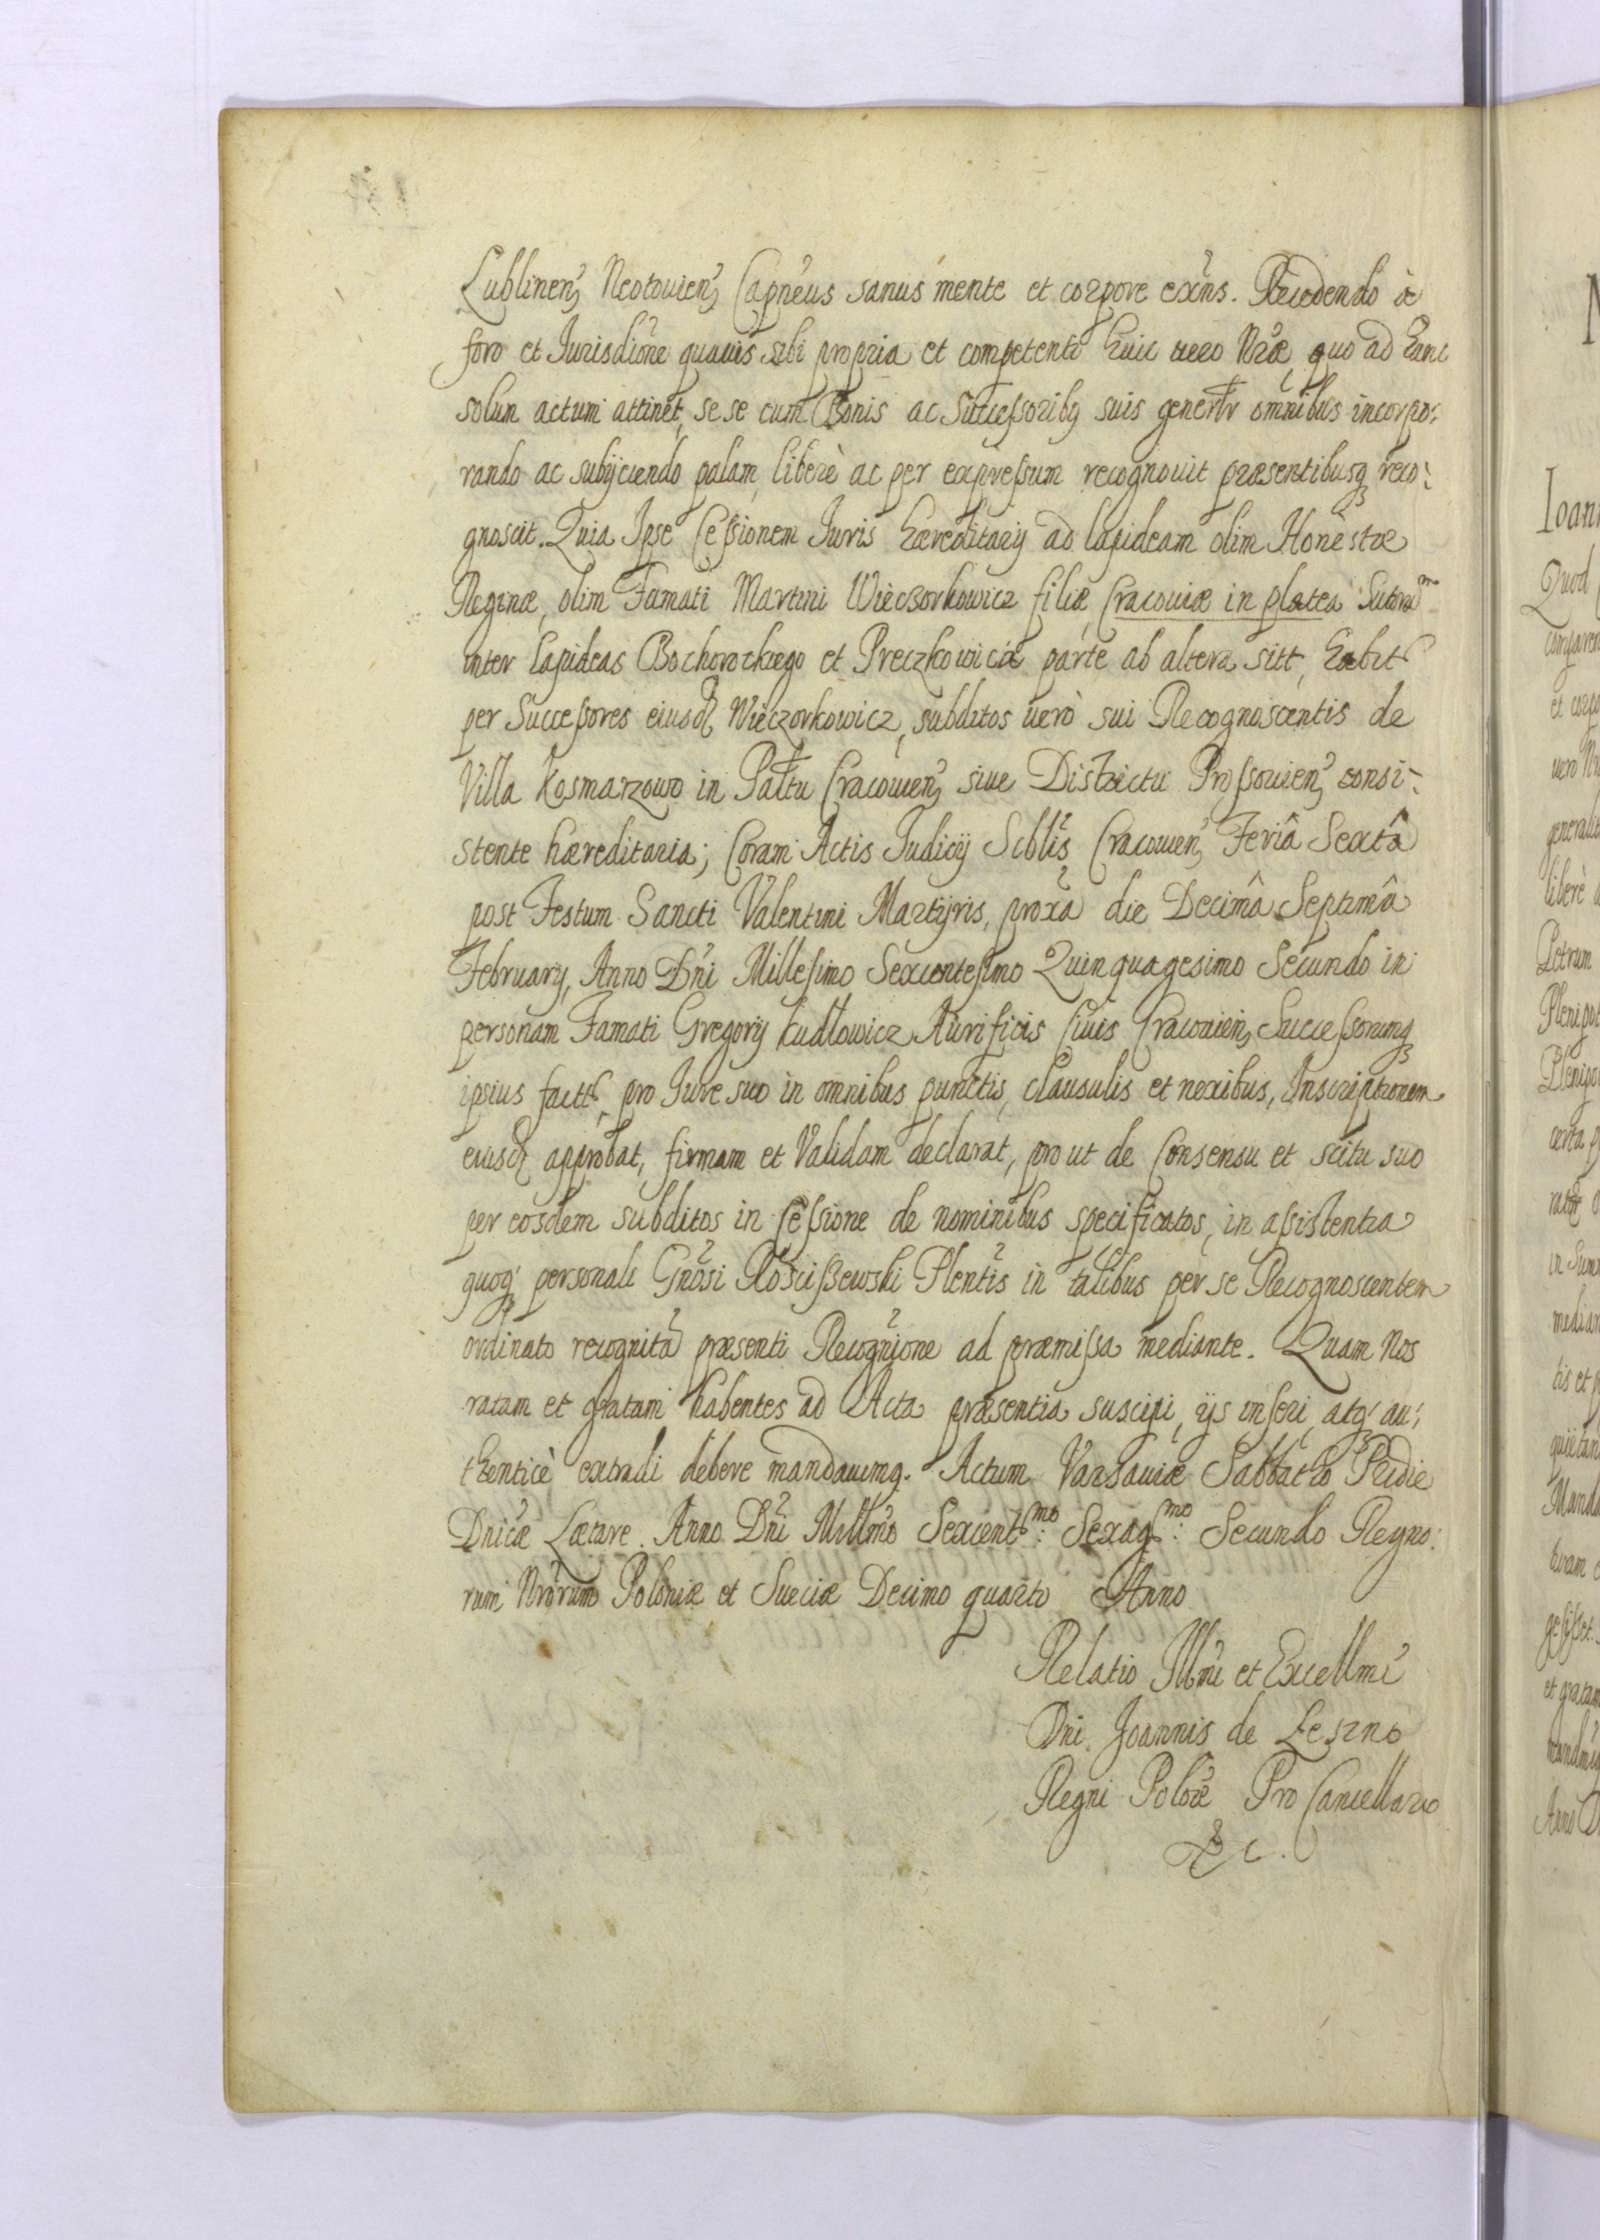 Lublinen, Neotouien, Capneus sanus mente et corpore exns. Recedendo à
foro et Jurisdione quauis sibi propria et competenti huic uero Nrae, quo ad hanc
solum actum attinet, sese cum Bonis ac Successoribq suis genertr omnibus incorpo:
rando ac subijciendo palam, liberè ac per expressum recognouit praesentibusq reco:
gnoscit. Quia Ipse Cessionem Juris haereditarij ad lapideam olim Honestae
Reginae, olim Famati Martini Wieczorkowicz filiae, Cracouiae in platea Sutorum
inter lapideas Bochorockiego et Preczkowicia parte ab altera sitt, habit
per Successores eiusd Wieczorkowicz, subditos uerò sui Recognoscentis de
Villa Kosmarzowo in Pattu Cracouien, siue Districtu Prossouien, consi:
stente haereditaria; Coram Actis Judicij Scblis Cracouien, Feriâ Sextâ
post Festum Sancti Valentini Martijris, proxa die Decimâ Septimâ
February, Anno Dni Millesimo Sexcentesimo Quinquagesimo Secundo in
personam Famati Gregorij Kudlowicz Aurificis Ciuis Cracouien, Successorumq
ipsius factt, pro Jure suo in omnibus punctis, clausulis et nexibus, Inscriptionem
eiusd approbat, firmam et Validam declarat, prout de Consensu et scitu suo
per eosdem subditos in Cessione de nominibus specificatos, in assistentia
quoq personali Gnosi Rosciszewski Plentis in talibus per se Recognoscentem
ordinato recognita praesenti Recognione ad praemissa mediante. Quam Nos
ratam et gratam habentes ad Acta praesentia suscipi, ijs inseri, atq au:
thenticè extradi debere mandauimq. Actum Varsauiae Sabbatho Pridie
Dnicae Laetare. Anno Dni Millmo Sexcentmo: Sexagmo: Secundo Regno:
rum Nrorum Poloniae et Sueciae Decimo quarto Anno
Relatio Illmi et Excellmi
Dni Joannis de Leszno
Regni Polõe Pro Cancellario
&c.